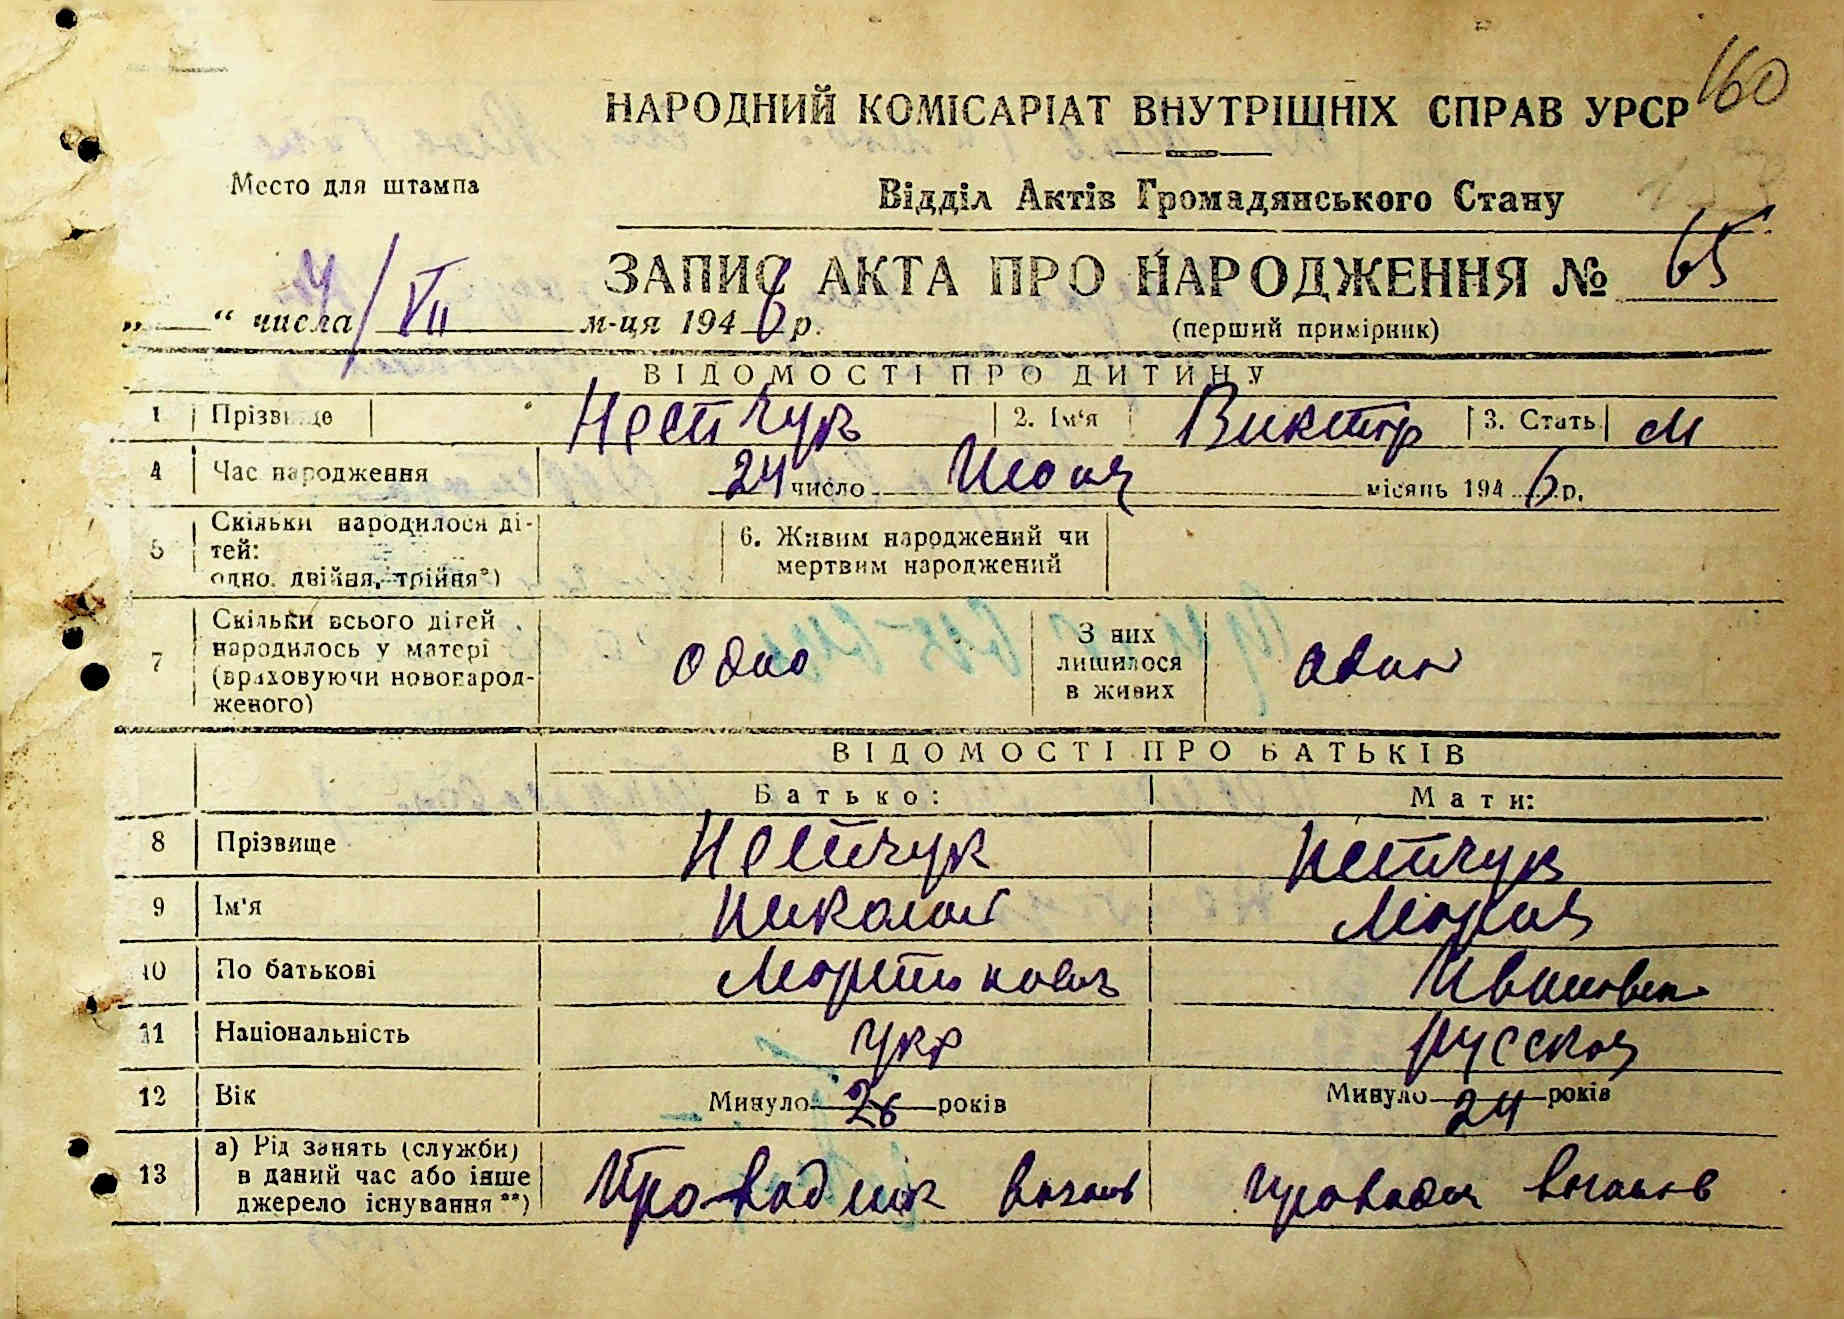 160
НАРОДНИЙ КОМІСАРІАТ ВНУТРІШНІХ СПРАВ УРСР
Место для штампа
Відділ Актів Громадянського Стану
ЗАПИС АКТА ПРО НАРОДЖЕННЯ № 65
„ 4 “ числа / VII м-ця 1946 р.
(перший примірник)
ВІДОМОСТІ ПРО ДИТИНУ
1 Прізвище Нестчук 2. Ім'я Виктор 3. Стать м
4 Час народження 24 число Июня місяць 1946 р.
5 Скільки народилося ді-
тей:
одно, двійня, трійня*)
6. Живим народжений чи
мертвим народжений
7 Скільки всього дітей
народилось у матері
(враховуючи новонарод-
женого)
одно
З них
лишилося
в живих
один
ВІДОМОСТІ ПРО БАТЬКІВ
Батько: Мати:
8 Прізвище Нестчук Нестчук
9 Ім'я Николай Мария
10 По батькові Мартынович Ивановна
11 Національність укр русская
12 Вік Минуло 26 років Минуло 24 років
13 а) Рід занять (служби)
в даний час або інше
джерело існування **)
Проводник вагонов вагонов